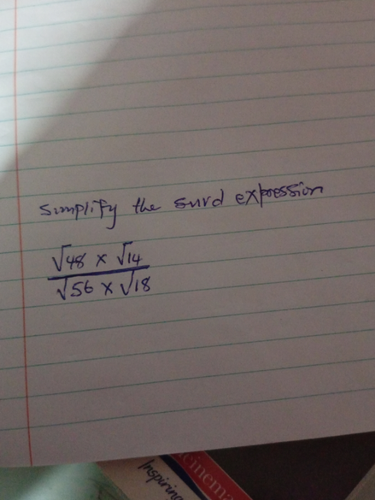 Simplify the surd expression
√48 × √14
√56 × √18
Inspiring